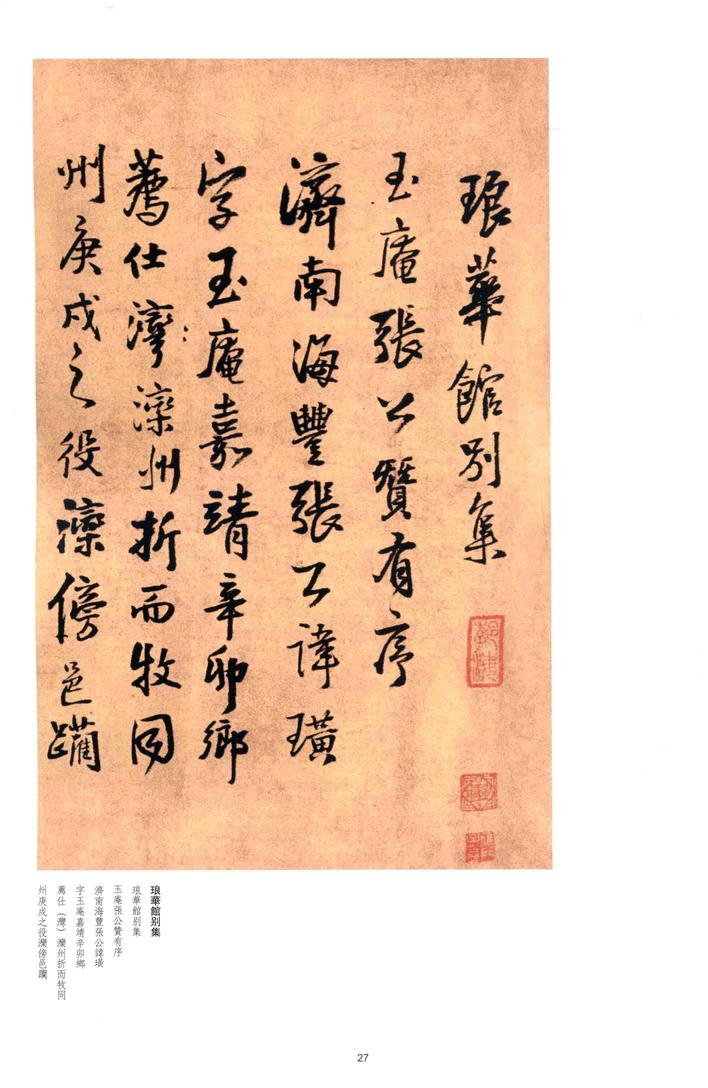 琅華館別集
玉庵張公贊有序
濟南海豐張公諱璜
字玉庵嘉靖辛卯鄉
薦仕灣灤州折而牧同
州庚戌之役灤傍邑躝
琅華館别集
琅華館别集
玉庵張公贊有序
濟南海豐張公諱璜
字玉庵嘉靖辛卯鄉
薦仕（灣）灤州折而牧同
州庚戌之役灤傍邑躝
27